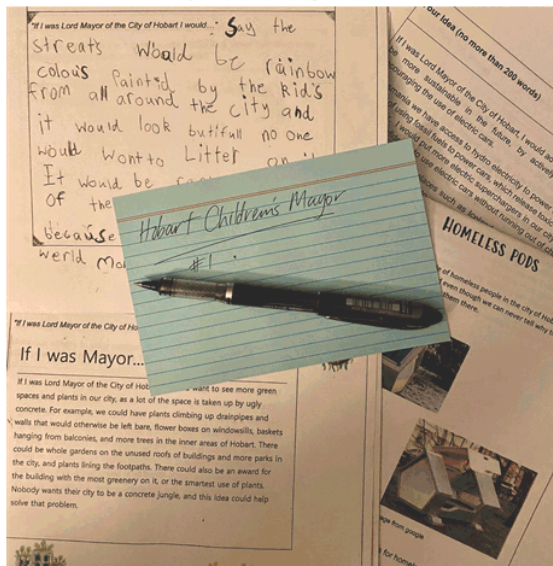 "If I was Lord Mayor of the City of Hobart I would..." Say the
streats Would be rainbow
colous Paintid by the kid's
from all around the city and
it would look butifull no one
would Wont to Litter on
It would be
Of the
because
werld
Hobart Children's Mayor
#1
"If I was Lord Mayor of the City of
If I was Mayor...
If I was Lord Mayor of the City of want to see more green
spaces and plants in our city, as a lot of the space is taken up by ugly
concrete. For example, we could have plants climbing up drainpipes and
walls that would otherwise be left bare, flower boxes on windowsills, baskets
hanging from balconies, and more trees in the inner areas of Hobart. There
could be whole gardens on the unused roofs of buildings and more parks in
the city, and plants lining the footpaths. There could also be an award for
the building with the most greenery on it, or the smartest use of plants.
Nobody wants their city to be a concrete jungle, and this idea could help
solve that problem.
our Idea (no more than 200 words)
If I was Lord Mayor of the City of Hobart, I would
be more sustainable in the future, by actively
couraging the use of electric cars.
we have access to hydro electricity to power
using fossil fuels to power cars, which release toxic
I would put more electric superchargers in our city
use electric cars without running out of
such as
HOMELESS PODS
of homeless people in the city of
even though we can never tell why
them there.
from google
for